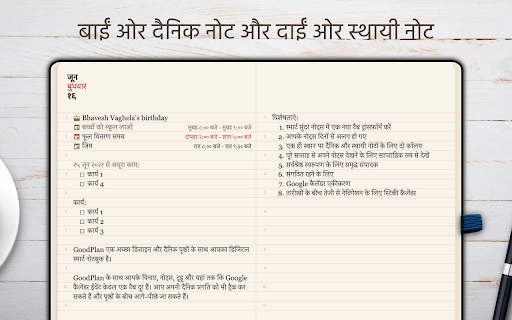 बाईं ओर दैनिक नोट और दाईं ओर स्थायी नोट
जून
बुधवार
१६
Bhavesh Vaghela's birthday
बच्चों को स्कूल लाओ सुबह ८:०० बजे - सुबह ९:०० बजे
फूल वितरण समय दोपहर २:०० बजे - शाम ५:०० बजे
जिम रात ८:०० बजे - रात ९:०० बजे
१५ जून २०२१ से अधूरा काम:
कार्य 1
कार्य 4
कार्य:
कार्य 1
कार्य 2
कार्य 3
GoodPlan एक अच्छा डिज़ाइन और दैनिक पृष्ठों के साथ आपका डिजिटल
स्मार्ट नोटबुक है।
GoodPlan के साथ आपके विचार, नोट्स, टूडू और यहां तक कि Google
कैलेंडर ईवेंट केवल एक टैब दूर हैं। आप अपनी दैनिक प्रगति को भी ट्रैक कर
सकते हैं और पृष्ठों के बीच आगे-पीछे जा सकते हैं।
विशेषताएं:
1. स्मार्ट सुंदर नोट्स में एक नया टैब ट्रांसफ़ॉर्म करें
2. आपके नोट्स दिनों से अलग हो गए
3. एक ही स्थान पर दैनिक और स्थायी नोटों के लिए दो कॉलम
4. पूरे सप्ताह से अपने नोट्स देखने के लिए साप्ताहिक रूप से देखें
5. सर्वश्रेष्ठ स्वरूपण के लिए समृद्ध संपादक
6. संगठित रहने के लिए
7. Google कैलेंडर एकीकरण
8. तारीखों के बीच तेजी से नेविगेशन के लिए स्टिकी कैलेंडर